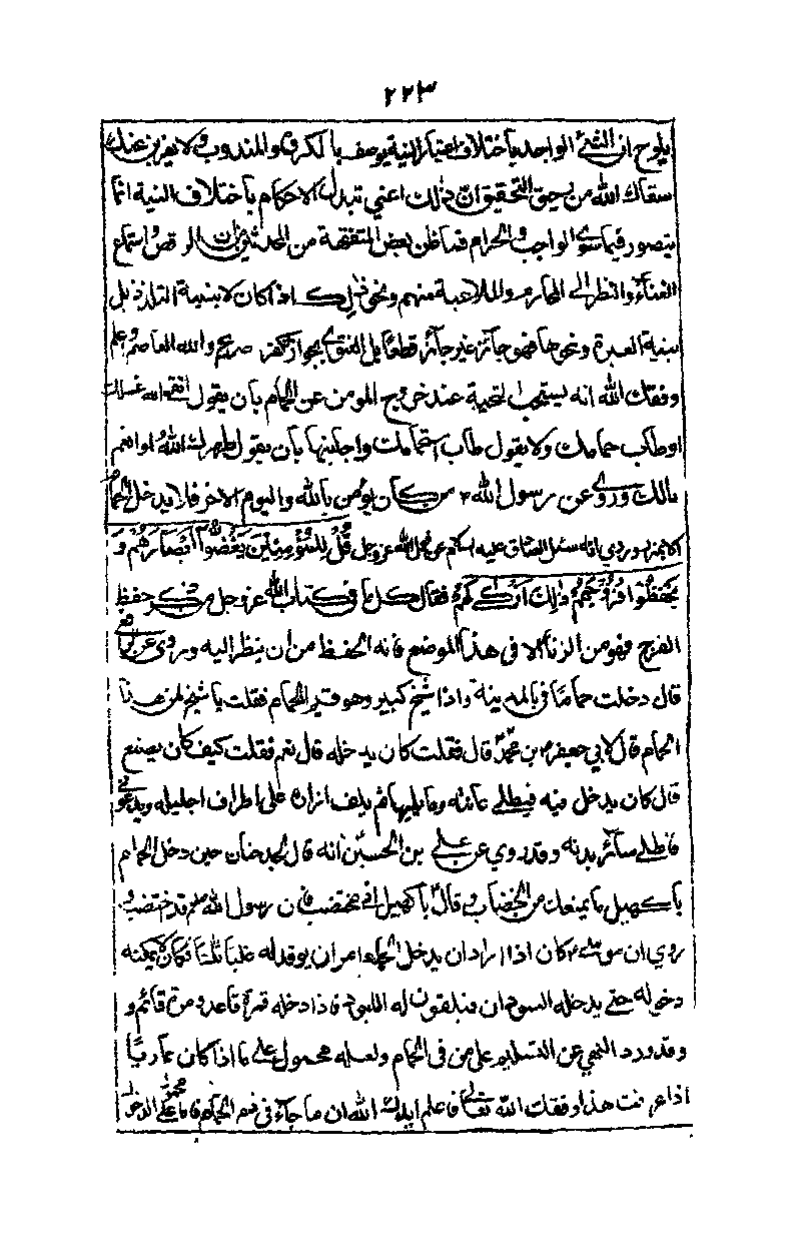 ٢٢٣
يلوح ان الشئ الواحد باختلاف اعتبار النية يوصف بالكراهة والمندوب ولا يعزبن عنك
سقاك الله من رحيق التحقيق ان ذلك اعني تبدل الاحكام باختلاف النية انما
يتصور فيما سوى الواجب والحرام فما ظن بعض المتفقهة من المحدثين ان الرقص واستماع
الغناء والنظر الى المحارم والملاعبة منهم ونحو ذلك اذا كان لا بنية التلذذ بل
بنية العبرة ونحوها فهو جائز غير جائز قطعا بل الفتوى بجوازه كفر صريح والله العاصم واعلم
وفقك الله انه يستحب التحية عند خروج المومن عن الحمام بان يقول انقى الله غسلك
او طاب حمامك ولا يقول طاب استحمامك واجابتها بان يقول طهرك الله او انعم
بالك وروى عن رسول الله من كان يؤمن بالله واليوم الاخر فلا يدخل الحمام
الا بميزر وروي انه سئل الصادق عليه السلام عن قول الله عز وجل قُلْ لِلْمُؤْمِنِينَ يَغُضُّوا أَبْصَارَهُمْ وَ
يَحْفَظُوا فُرُوجَهُمْ ذٰلِكَ أَزْكَى لَهُمْ فقال كل ما في كتاب الله عز وجل من ذكر حفظ
الفرج فهو من الزنا الا في هذا الموضع فانه الحفظ من ان ينظر اليه وروى عن
قال دخلت حماما في بالمدينة واذا شيخ كبير وهو قيم الحمام فقلت يا شيخ لمن هذا
الحمام قال لابي جعفر بن محمد قال فقلت كان يدخله قال نعم فقلت كيف كان يصنع
قال كان يدخل فيه فيطلي عانته وما يليها ثم يلف ازاره على اطراف احليله ويدعوني
فاطلي سائر بدنه وقد روي عن علي بن الحسين انه قال حين دخل الحمام
ما يمنعك من الخضاب وقال اني مختضب فان رسول الله صلعم قد اختضب و
روي ان كان اذا اراد ان يدخل الحمام امر ان يوقد له عليه ثلثا فكان لا يمكنه
دخوله حتى يدخله السودان فيلقون له اللبود فاذا دخله فمرة قاعد ومرة قائم و
وقد ورد النهي عن التسليم على من في الحمام ولعله محمول على ما اذا كان عاريا
اذا عرفت هذا وفقك الله تعالى فاعلم ايدك الله ان ما جاء في ذم الحمام